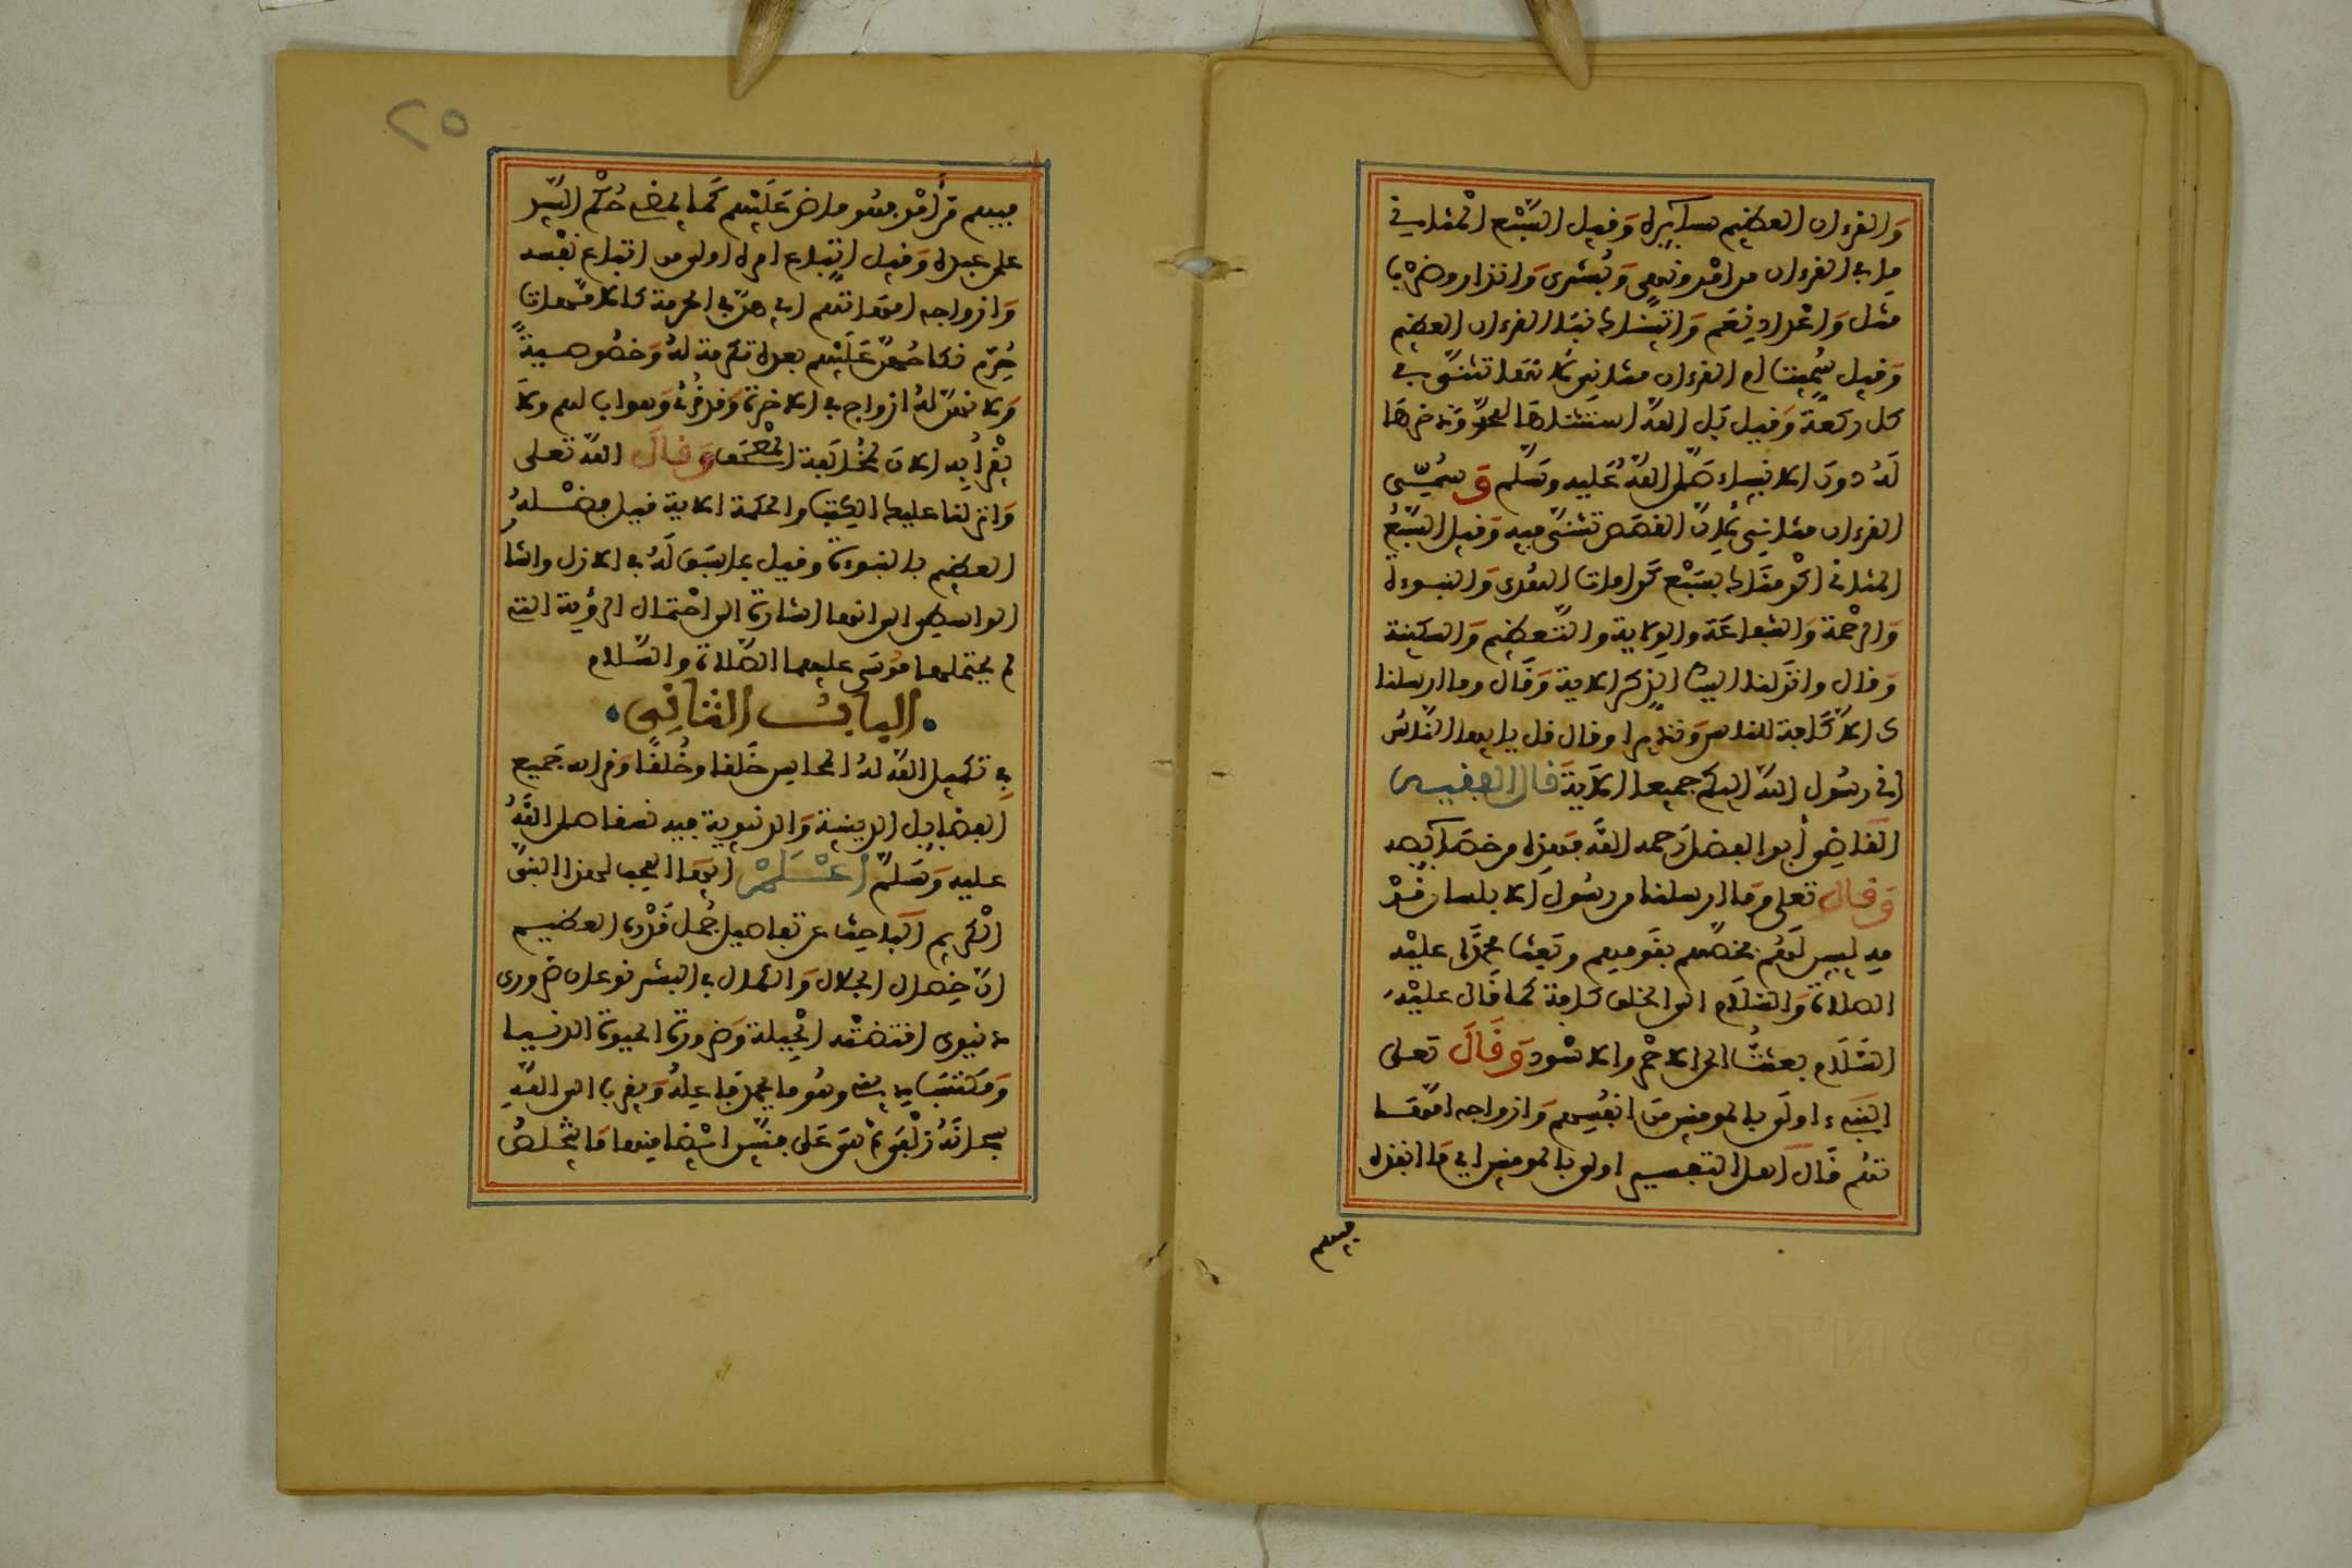 والقرءان العظيم سآئره وقيل السبع المثاني
ما في القرءان من امر ونهي وبشرى وانذار وضرب
مثل واعداد نعم واتيناك نبأ القرءان العظيم
وقيل سميت ام القرءان مثاني لانها تثنى في
كل ركعة وقيل بل الله استثناها لمحمد وذخرها
له دون الانبياء صلى الله عليه وسلم وسمي
القرءان مثاني لان القصص تثنى فيه وقيل السبع
المثاني اكرمناك بسبع كرامات الهدى والنبوءة
والرحمة والشفاعة والولاية والتعظيم والسكينة
وقال وانزلنا اليك الذكر الاية وقال وما ارسلنا
ك الا كافة للناس ونذيرا وقال قل يايها الناس
اني رسول الله اليكم جميعا الاية قال الفقيه
القاضي أبو الفضل رحمه الله فهذه من خصآئصه
وقال تعلى وما ارسلنا من رسول الا بلسان قو
مه ليبين لهم فخصهم بقومهم وبعث محمدا عليه
الصلاة والسلام الى الخلق كافة كما قال عليه
السلام بعثت الى الاحمر والاسود وقال تعلى
النبيء اولى بالمومنين من انفسهم وازواجه امها
تهم قال اهل التفسير اولى بالمومنين اي ما انفذه
فيهم
٢٥
فيهم من أمر فهو ماض عليهم كما يمضي حكم السيد
على عبده وقيل اتباع امره اولى من اتباع نفسه
وازواجه امهاتهم اي هن في الحرمة كالامهات
حرم نكاحهن عليهم بعده تكرمة له وخصوصية
ولانهن له ازواج في الاخرة وقد قرئ وهو اب لهم ولا
يقرأ به الان لمخالفة المصحف وقال الله تعلى
وانزلنا عليك الكتب والحكمة الاية قيل فضله
العظيم بالنبوءة وقيل بما سبق له في الازل واشا
الواسطي الى انها اشارة الى احتمال الرؤية التي
لم يحتملها موسى عليهما الصلاة والسلام
الباب الثاني
في تكميل الله له المحاسن خلقا وخلقا وقرانه جميع
الفضايل الدينية والدنيوية فيه نسقا صلى الله
عليه وسلم اعلم ايها المحب لهذا النبي
الكريم الباحث عن تفاصيل جمل قدره العظيم
ان خصال الجلال والكمال في البشر نوعان ضروري
دنيوي اقتضته الجبلة وضرورة الحيوة الدنيا
ومكتسب ديني وهو ما يحمد فاعله ويقرب الى الله
سبحانه زلفى ثم هي على فنين ايضا منها ما يتخلص